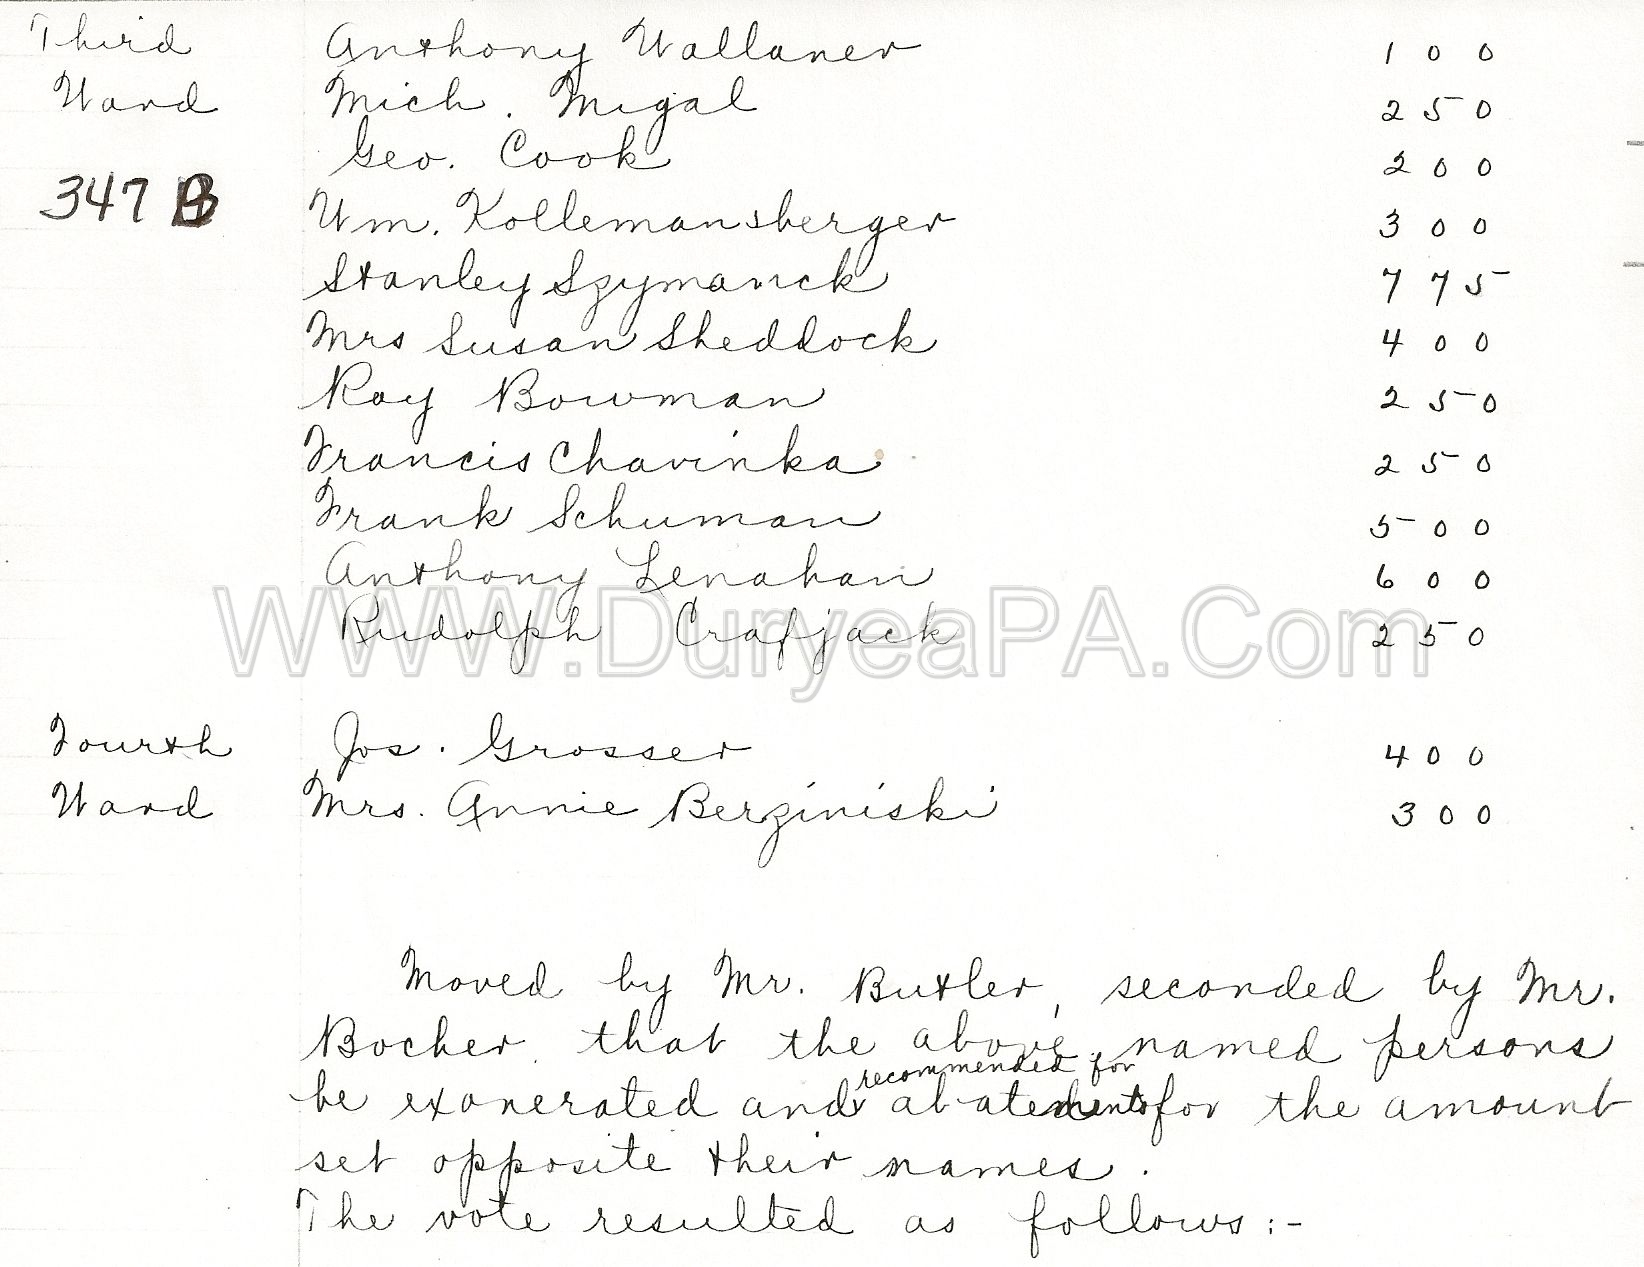 Third Anthony Wallaner 1 0 0
Ward Mich. Migal 2 5 0
Geo. Cook 2 0 0
347 B Wm. Kollemansberger 3 0 0
Stanley Szymanck 7 7 5
Mrs Susan Sheddock 4 0 0
Ray Bowman 2 5 0
Francis Chavinka 2 5 0
Frank Schuman 5 0 0
Anthony Lenahan 6 0 0
Rudolph Crafjack 2 5 0
WWW.DuryeaPA.Com
Fourth Jos. Grosser 4 0 0
Ward Mrs. Annie Berziniski 3 0 0
Moved by Mr. Butler, seconded by Mr.
Bocher that the above named persons
recommended for
be exonerated and abatements for the amount
set opposite their names.
The vote resulted as follows:-